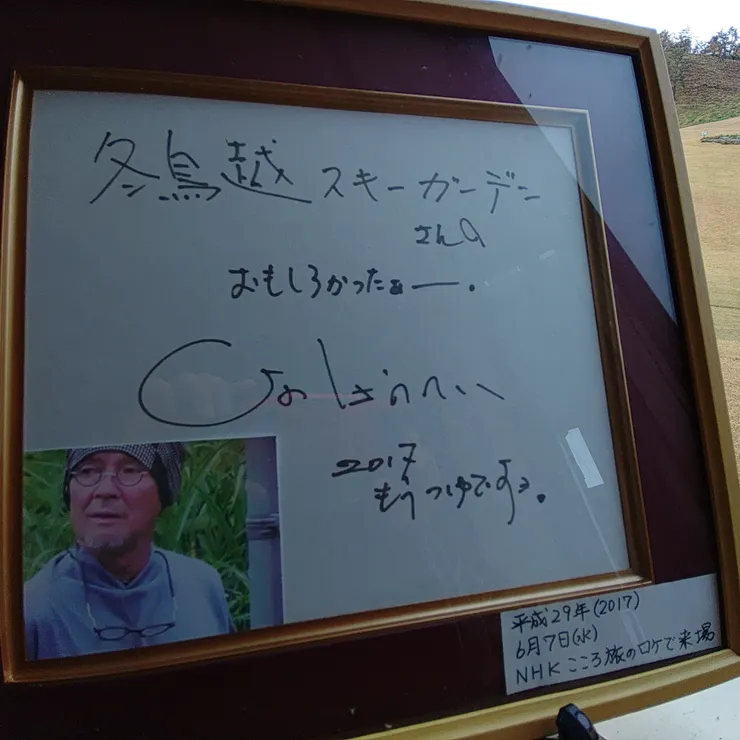 冬鳥越スキーガーデン
さんの
おもしろかったぁー。
2017
もうつゆですョ。
平成29年(2017)
6月7日(水)
NHKこころ旅のロケで来場